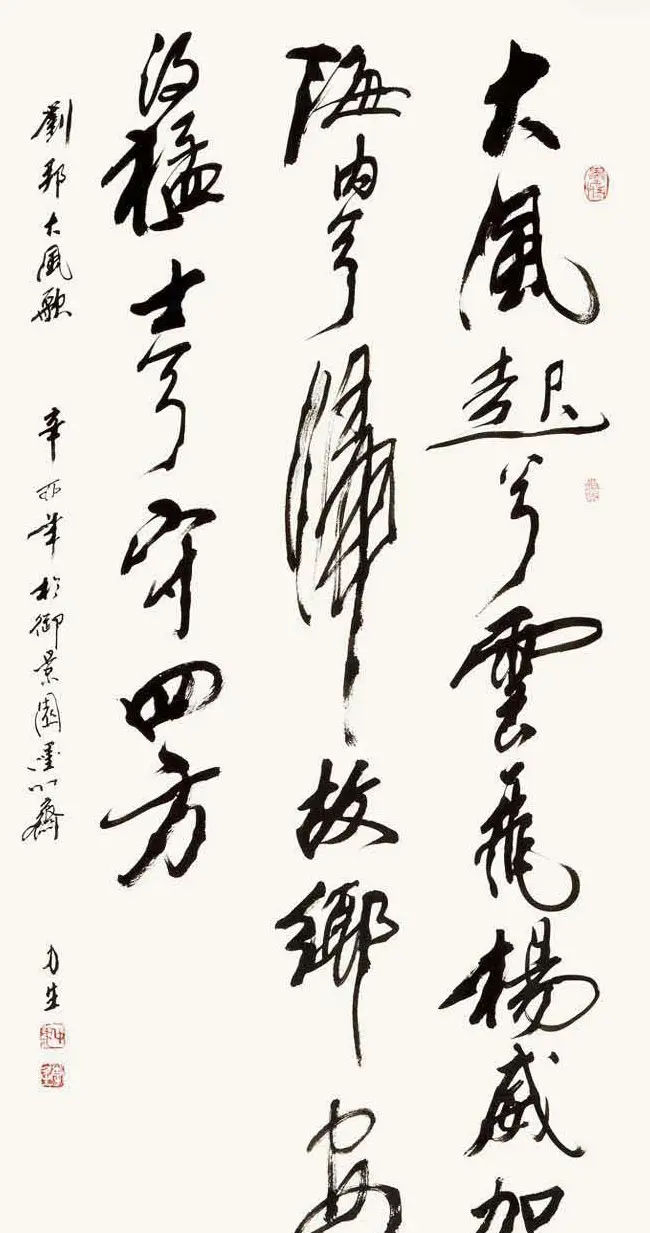 大風起兮雲飛楊威加
海内兮歸故鄉安
得猛士兮守四方
劉邦大風歌 辛卯年於御景園墨心齋 力生